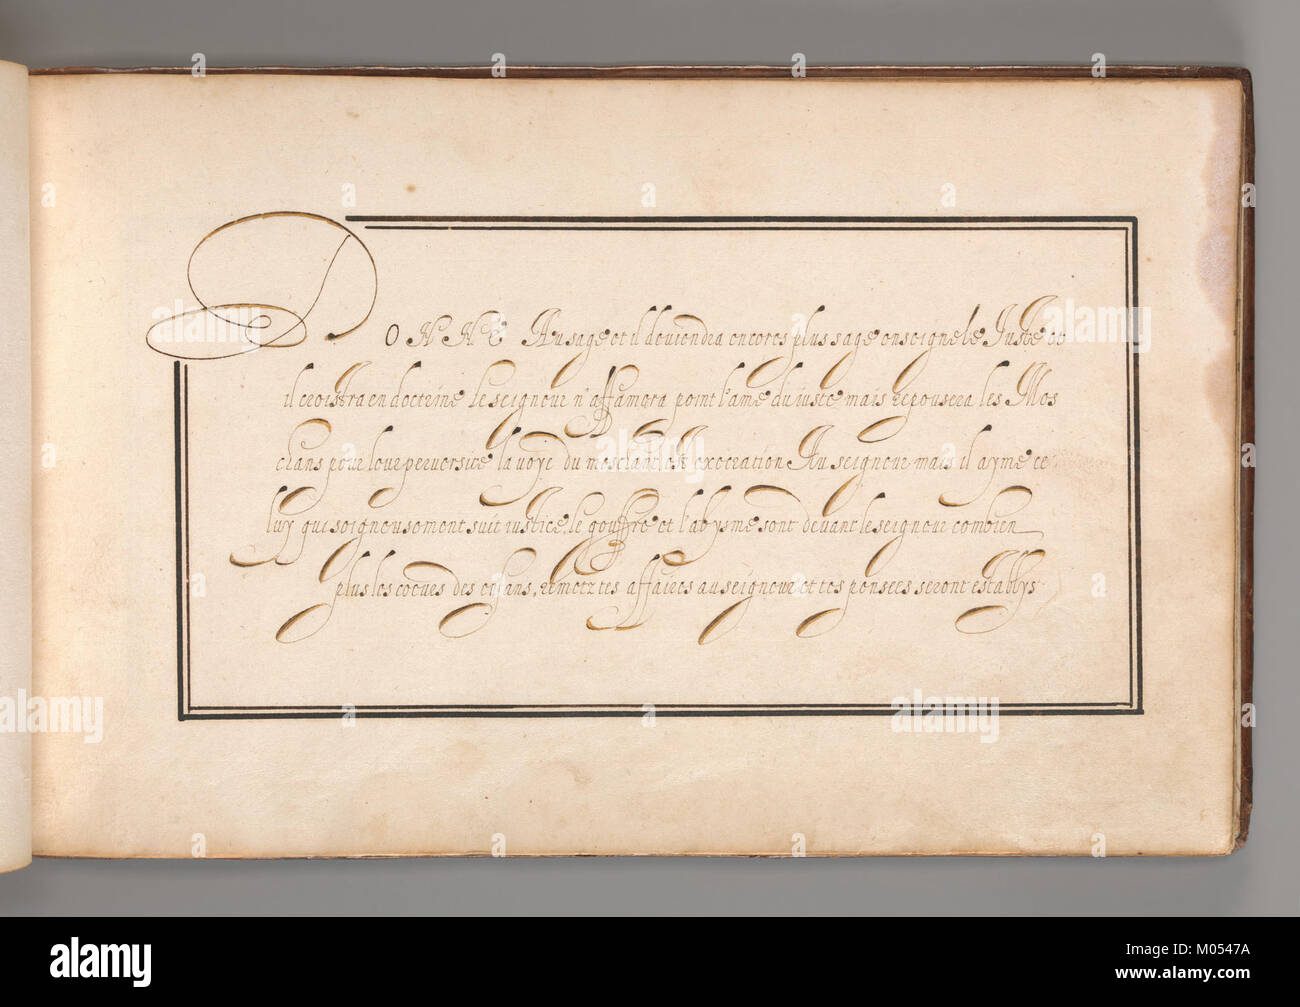 DONNE Au sage et il deviendra encores plus sage enseigne le Juste et
il croistra en doctrine le seigneur n'affamera point l'ame du juste mais repousera les Mes
chans pour leur perversité la voye du meschant est execration Au seigneur mais il ayme ce
luy qui soigneusement suit justice, le gouffre et l'abysme sont devant le seigneur combien
plus les coeurs des effans, remetz tes affaires au seigneur et tes pensees seront establys
alamy
Image ID: M0547A
www.alamy.com